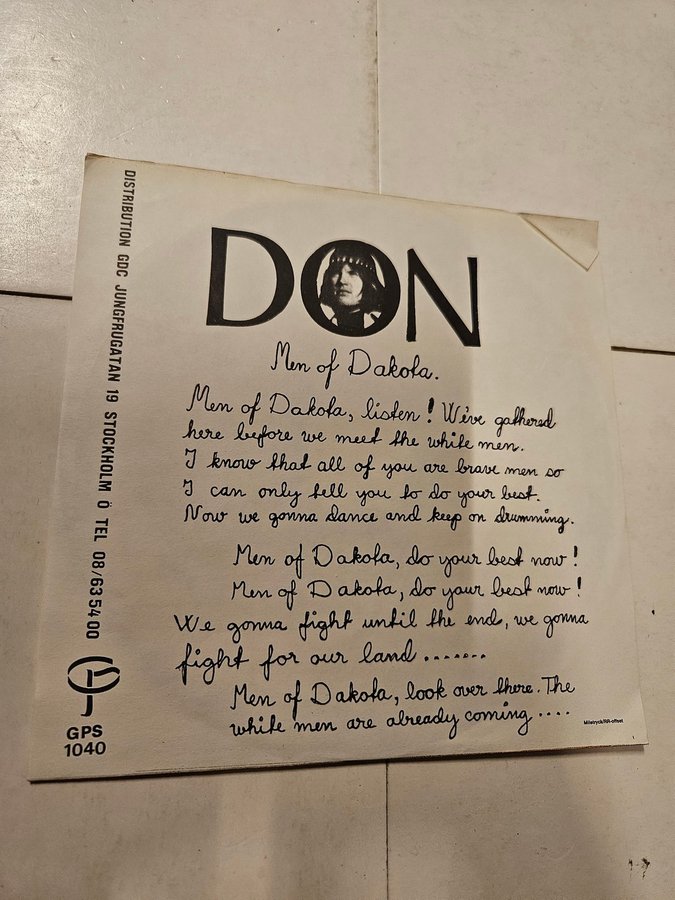 DON
Men of Dakota.
Men of Dakota, listen! We've gathered
here before we meet the white men.
I know that all of you are brave men so
I can only tell you to do your best.
Now we gonna dance and keep on drumming.
Men of Dakota, do your best now!
Men of Dakota, do your best now!
We gonna fight until the end, we gonna
fight for our land .......
Men of Dakota, look over there. The
white men are already coming ....
DISTRIBUTION GDC JUNGFRUGATAN 19 STOCKHOLM Ö TEL 08/63 54 00
GPS
1040
Miletryck/RR-offset